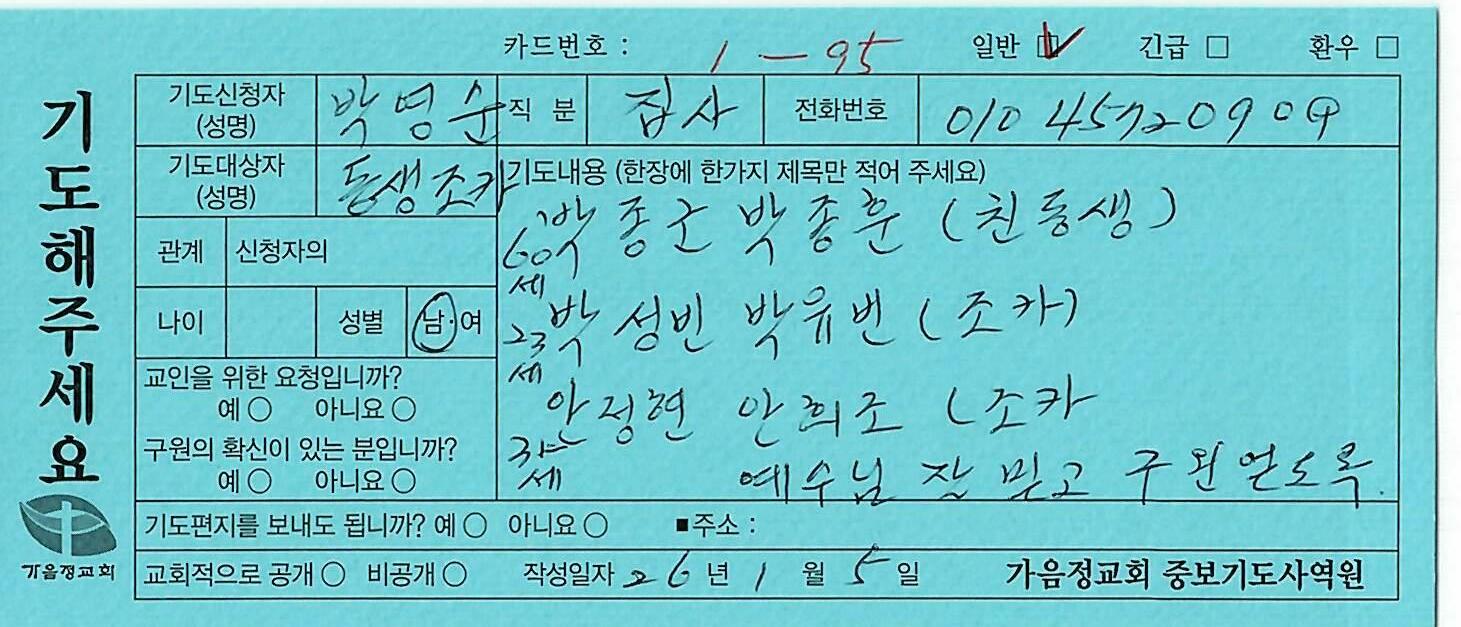 카드번호 : 1 - 95 일반 ☑ 긴급 □ 환우 □
기도해주세요
기도신청자 (성명) 박영순 직 분 집사 전화번호 010 4572090
기도대상자 (성명) 동생조카
관계 신청자의
나이 성별 남·여
교인을 위한 요청입니까?
예 ○ 아니요 ○
구원의 확신이 있는 분입니까?
예 ○ 아니요 ○
기도내용 (한장에 한가지 제목만 적어 주세요)
60세 박종군 박종훈 (친동생)
23세 박성빈 박유빈 (조카)
세 안정현 안희조 (조카
예수님 잘 믿고 구원얻도록.
기도편지를 보내도 됩니까? 예 ○ 아니요 ○ ■주소 :
교회적으로 공개 ○ 비공개 ○ 작성일자 26년 1월 5일 가음정교회 중보기도사역원
가음정교회